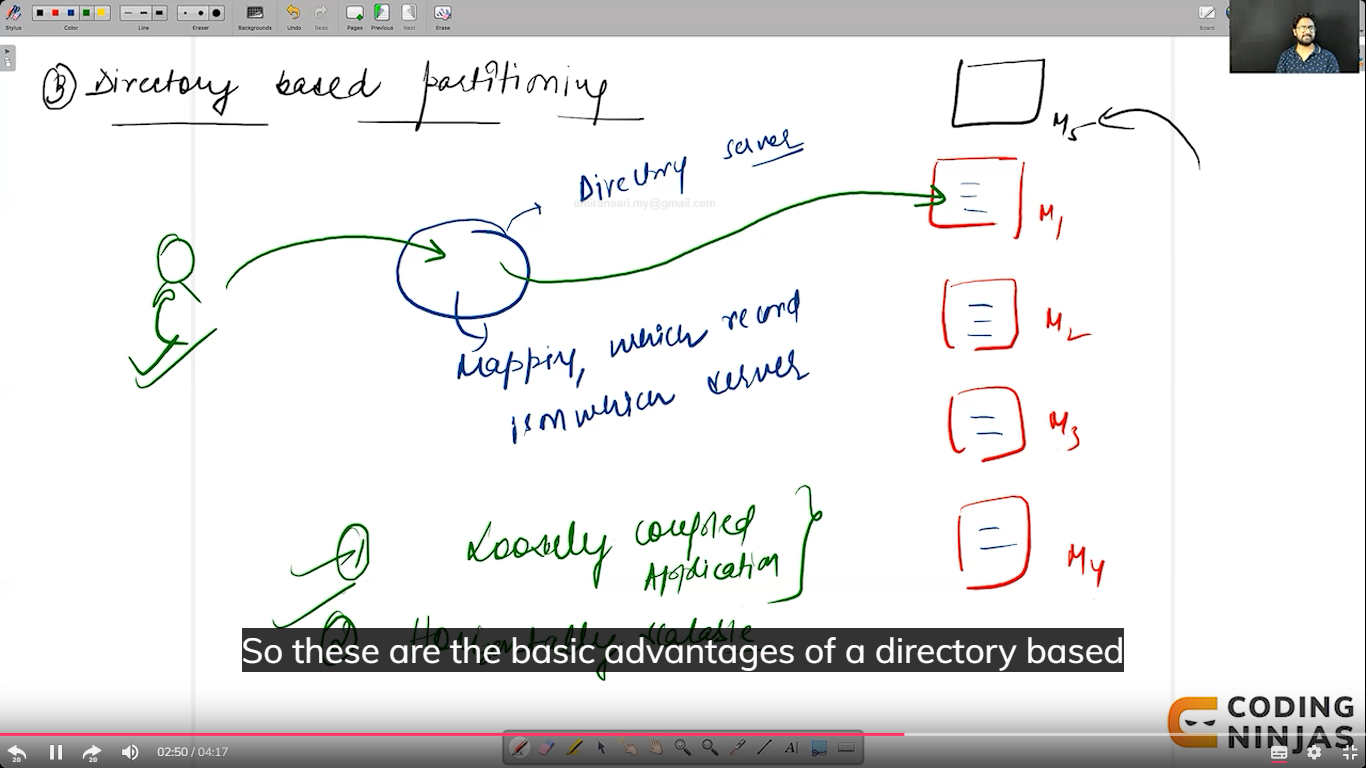 Stylus
Color
Line
Eraser
Backgrounds
Undo
Redo
Pages
Previous
Next
Erase
Board
③ Directory based partitioning
M5
Directory server
amiransari.my@gmail.com
M1
Mapping, which record
is on which server
M2
M3
M4
① Loosely coupled
Application
② Horizontally scalable
So these are the basic advantages of a directory based
CODING
NINJAS
20
20
02:50 / 04:17